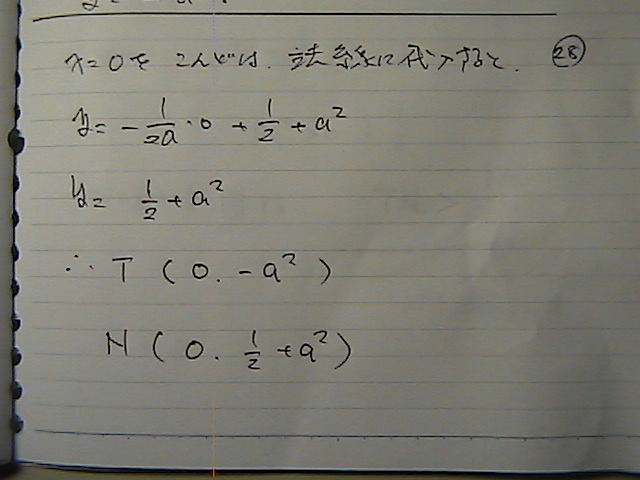 x=0を こんどは. 法線に代入すると. ㉘
y = -1/2a・0 + 1/2 + a²
y = 1/2 + a²
∴ T ( 0. -a² )
N ( 0. 1/2 + a² )